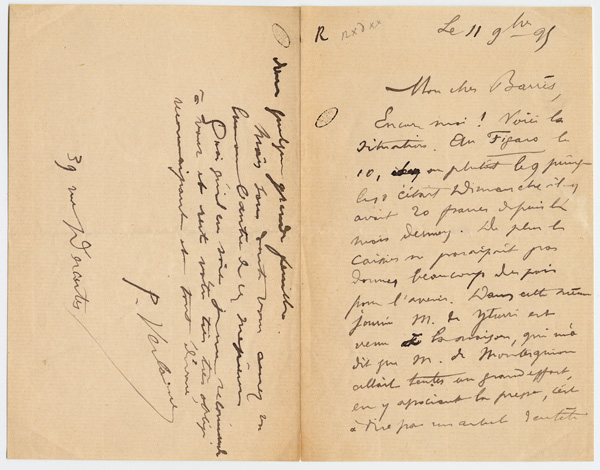 R
Le 11 9bre 95
Mon cher Barrès,
Encore moi ! Voici la
situation. Au Figaro le
10, ou plutôt le 9 puisque
le 10 c'était Dimanche il y
avait 20 francs depuis le
mois dernier. De plus la
Caisse ne pouvait pas
donner beaucoup des fois
pour l'avenir. Dans cette même
journée M. de Yturri est
venu à la maison, qui m'a
dit que M. de Montesquiou
allait tenter un grand effort,
en y associant la presse, c'est
à dire par un article
dans quelque grande feuille.
Mais sans doute vous aurez eu
l'un ou l'autre de ces messieurs
Quoi qu'il en soit je me recommande
à vous et suis votre très très obligé
reconnaissant et tout
P. Verlaine
39 rue Descartes